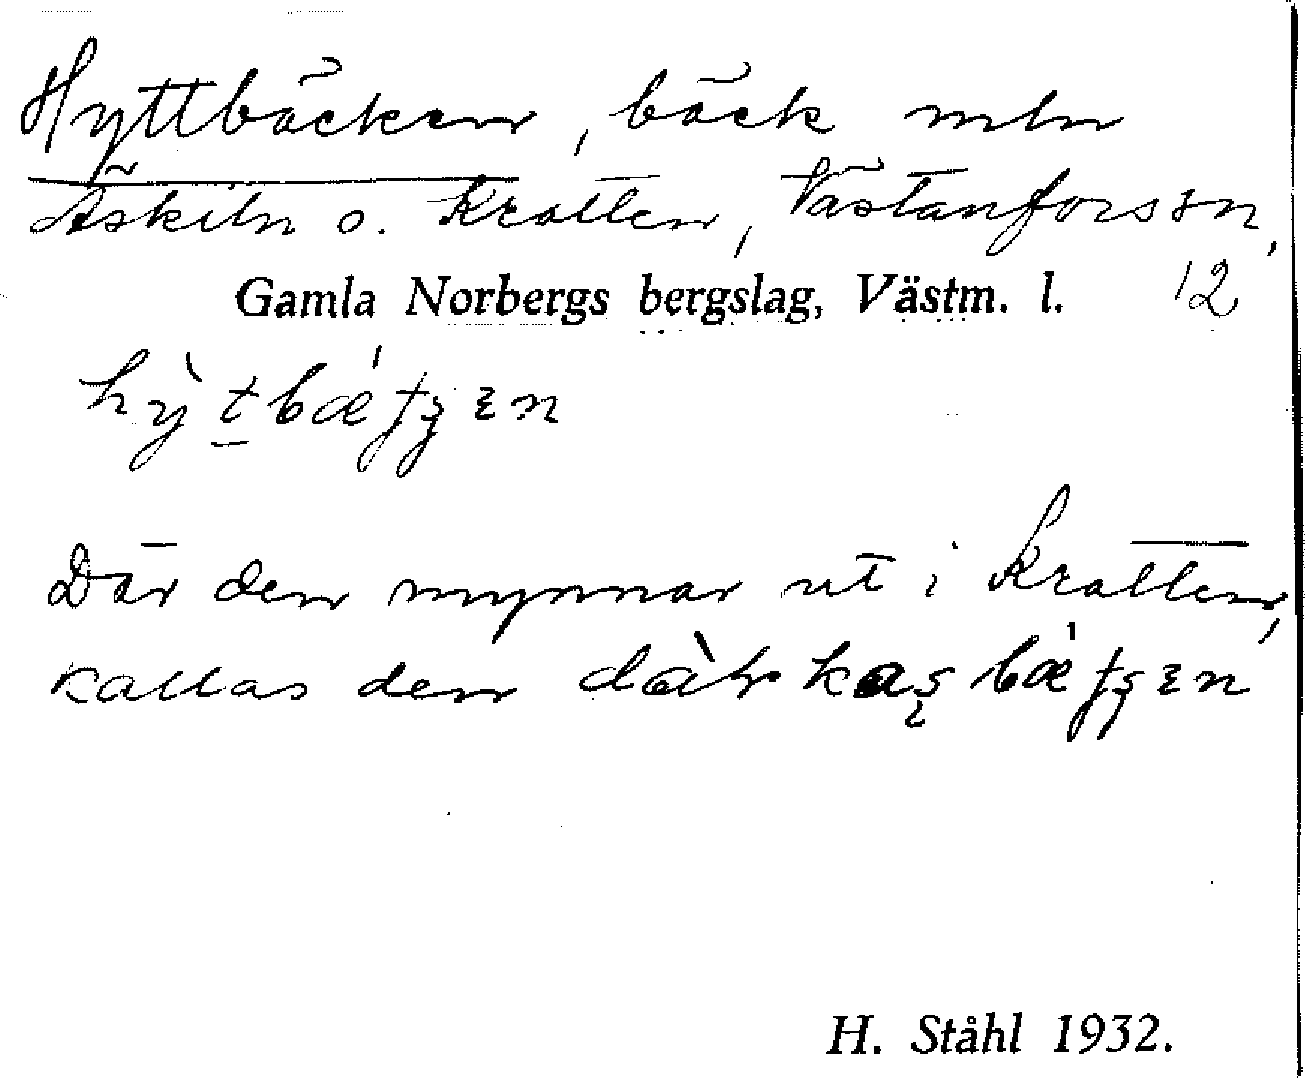 Hyttbäcken, bäck mln
Äskiln o. Kratten, Västanfors sn,
Gamla Norbergs bergslag, Västm. l. 12
Där den mynnar ut i Kratten,
kallas den
H. Ståhl 1932.